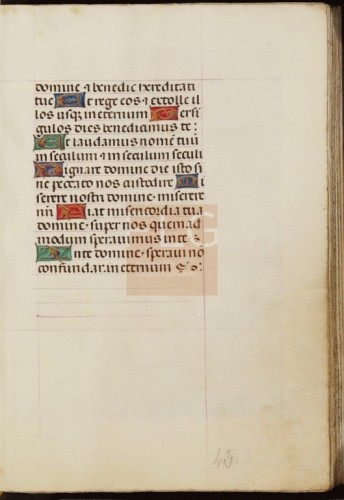 domine ⁊ benedic hereditati
tue Et rege eos ⁊ extolle il
los usq; in eternum Per si
gulos dies benedicimus te :
Et laudamus nomē tuū
in seculum ⁊ in seculum seculi
Dignare domine die isto si
ne peccato nos custodire Mi
serere nostri domine · miserere
nr̄i Fiat misericordia tua
domine · super nos quemad
modum speravimus in te
In te domine · speravi nō
confundar in eternum
FLG
43